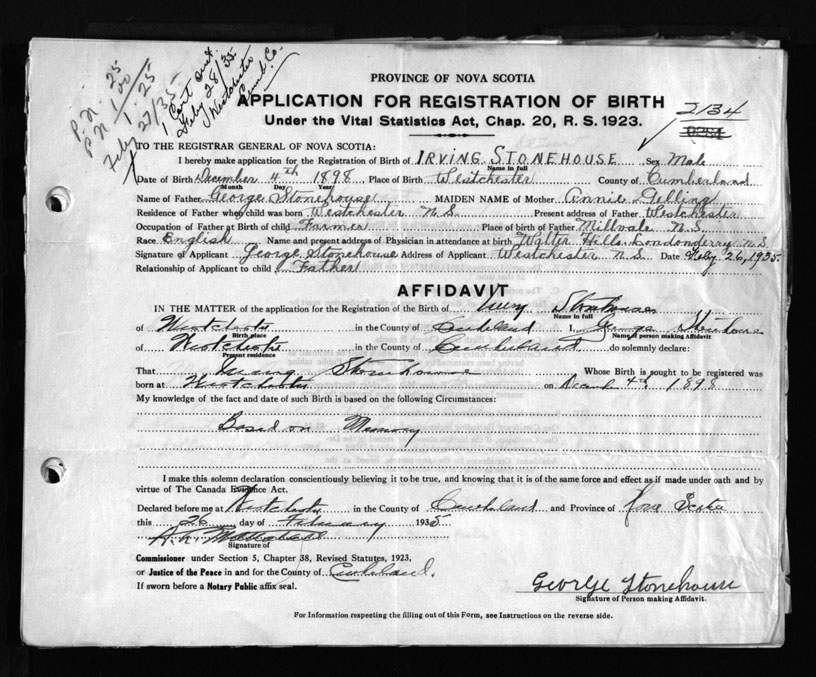 P.N. 25
P.N. 1.00
1.25
Feby 27/35
1 Cert
Feby 28/35
Westchester
Cumb. Co.
PROVINCE OF NOVA SCOTIA
APPLICATION FOR REGISTRATION OF BIRTH
Under the Vital Statistics Act, Chap. 20, R. S. 1923.
2134
TO THE REGISTRAR GENERAL OF NOVA SCOTIA:
I hereby make application for the Registration of Birth of IRVING STONEHOUSE Sex Male
Name in full
Date of Birth December 4th 1898 Place of Birth Westchester County of Cumberland
Month Day Year
Name of Father George Stonehouse MAIDEN NAME of Mother Annie Gelling
Residence of Father when child was born Westchester N.S. Present address of Father Westchester
Occupation of Father at Birth of child Farmer Place of birth of Father Millvale N.S.
Race English Name and present address of Physician in attendance at birth Walter Hills Londonderry N.S.
Signature of Applicant George Stonehouse Address of Applicant Westchester N.S. Date Feby 26, 1935
Relationship of Applicant to child Father
AFFIDAVIT
IN THE MATTER of the application for the Registration of the Birth of Stonehouse
Name in full
of Westchester in the County of Cumberland I, George Stonehouse
Birth place Name of person making Affidavit
of Westchester in the County of Cumberland do solemnly declare:
Present residence
That Irving Stonehouse Whose Birth is sought to be registered was
born at Westchester on December 4th, 1898
My knowledge of the fact and date of such Birth is based on the following Circumstances:
Based on Memory
I make this solemn declaration conscientiously believing it to be true, and knowing that it is of the same force and effect as if made under oath and by
virtue of The Canada Evidence Act.
Declared before me at Westchester in the County of Cumberland and Province of Nova Scotia
this 26 day of February 1935
Signature of
Commissioner under Section 5, Chapter 38, Revised Statutes, 1923,
or Justice of the Peace in and for the County of Cumberland.
If sworn before a Notary Public affix seal.
George Stonehouse
Signature of Person making Affidavit.
For Information respecting the filling out of this Form, see Instructions on the reverse side.